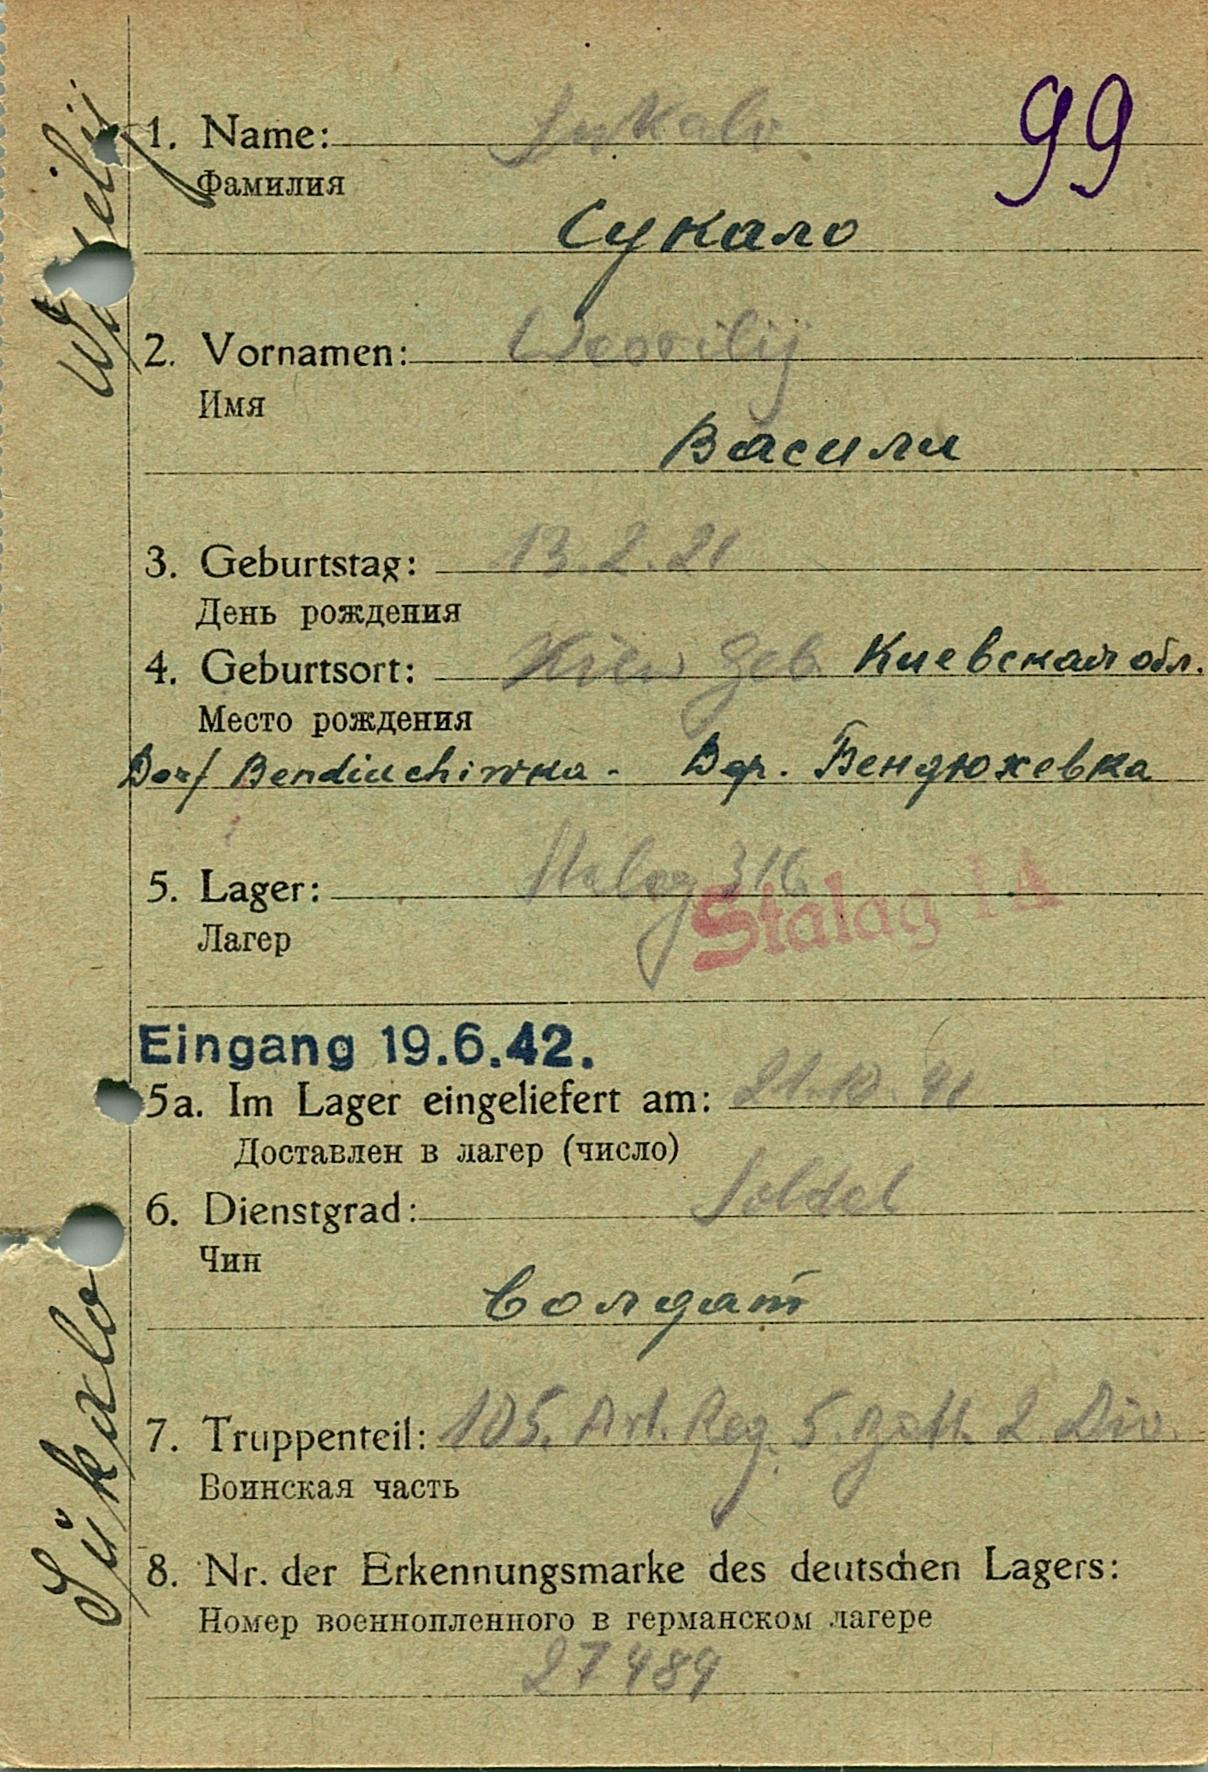 99
1. Name: Sukalo
Фамилия
Сукало
2. Vornamen: Wassilij
Имя
Васили
3. Geburtstag: 13.2.21
День рождения
4. Geburtsort: Kiew Geb. Киевская обл.
Место рождения
Dorf Bendiuchiwka - Дер. Бендюжевка
5. Lager: Stalag 316
Stalag IA
Лагер
Eingang 19.6.42.
5a. Im Lager eingeliefert am: 21.10.41
Доставлен в лагер (число)
6. Dienstgrad: Soldat
Чин
Солдат
7. Truppenteil: 105. Art. Reg. 5. Batt. 2. Div.
Воинская часть
8. Nr. der Erkennungsmarke des deutschen Lagers:
Номер военнопленного в германском лагере
27489
Sŭkalo